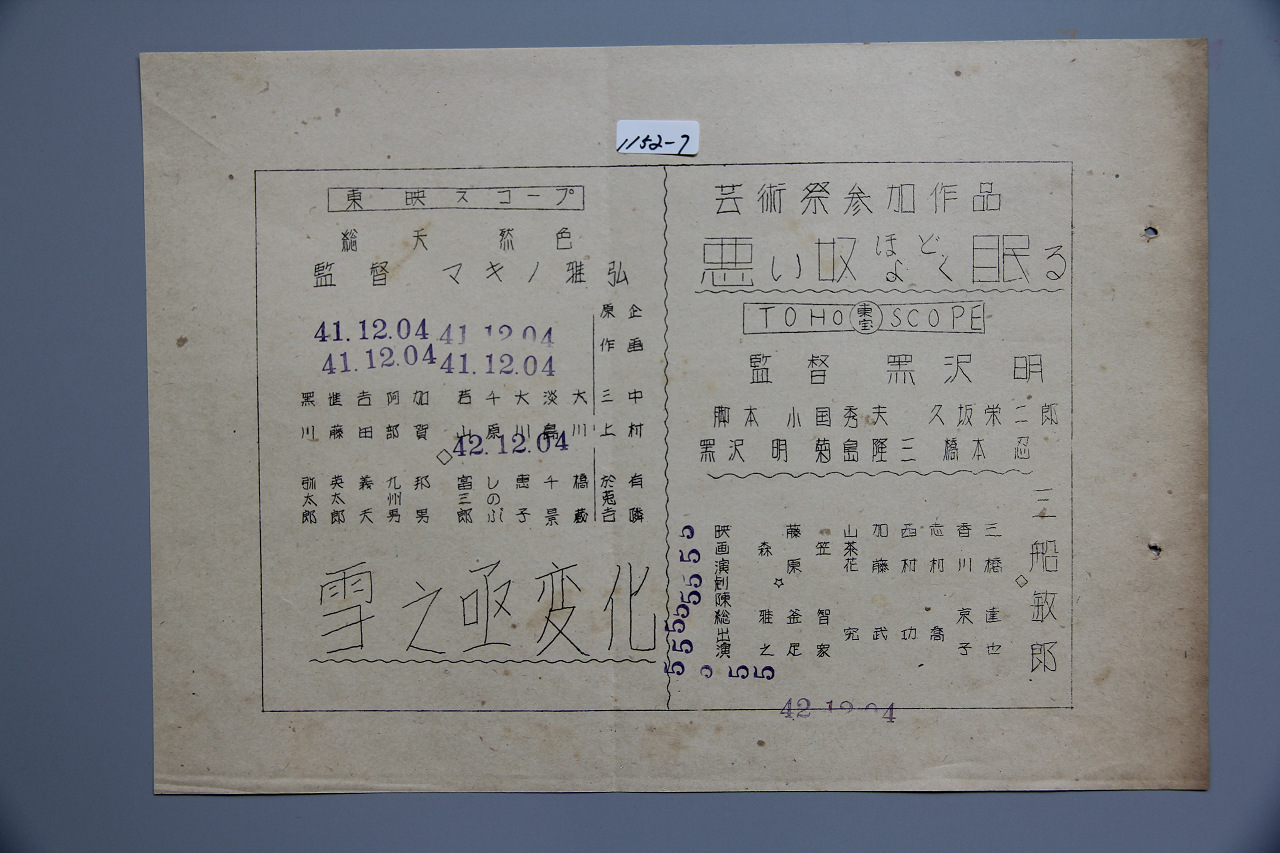 1152-7
芸術祭参加作品
悪い奴ほどよく眠る
TOHO 東宝 SCOPE
監督 黒沢 明
脚本 小国秀夫 久坂栄二郎
黒沢 明 菊島隆三 橋本 忍
三船敏郎
三橋達也
香川京子
志村 喬
西村 功
加藤 武
山茶花 究
笠 智衆
藤原釜足
森 雅之
映画演劇陣総出演
東映スコープ
総天然色
監督 マキノ雅弘
企画 中村有隣
原作 三上於菟吉
大川橋蔵
淡島千景
大川恵子
千原しのぶ
若山富三郎
加賀邦男
阿部九州男
吉田義夫
進藤英太郎
黒川弥太郎
雪之丞変化
41.12.04
41.12.04
41.12.04
41.12.04
42.12.04
42.12.04
5
5
5
5
5
5
5
5
5
5